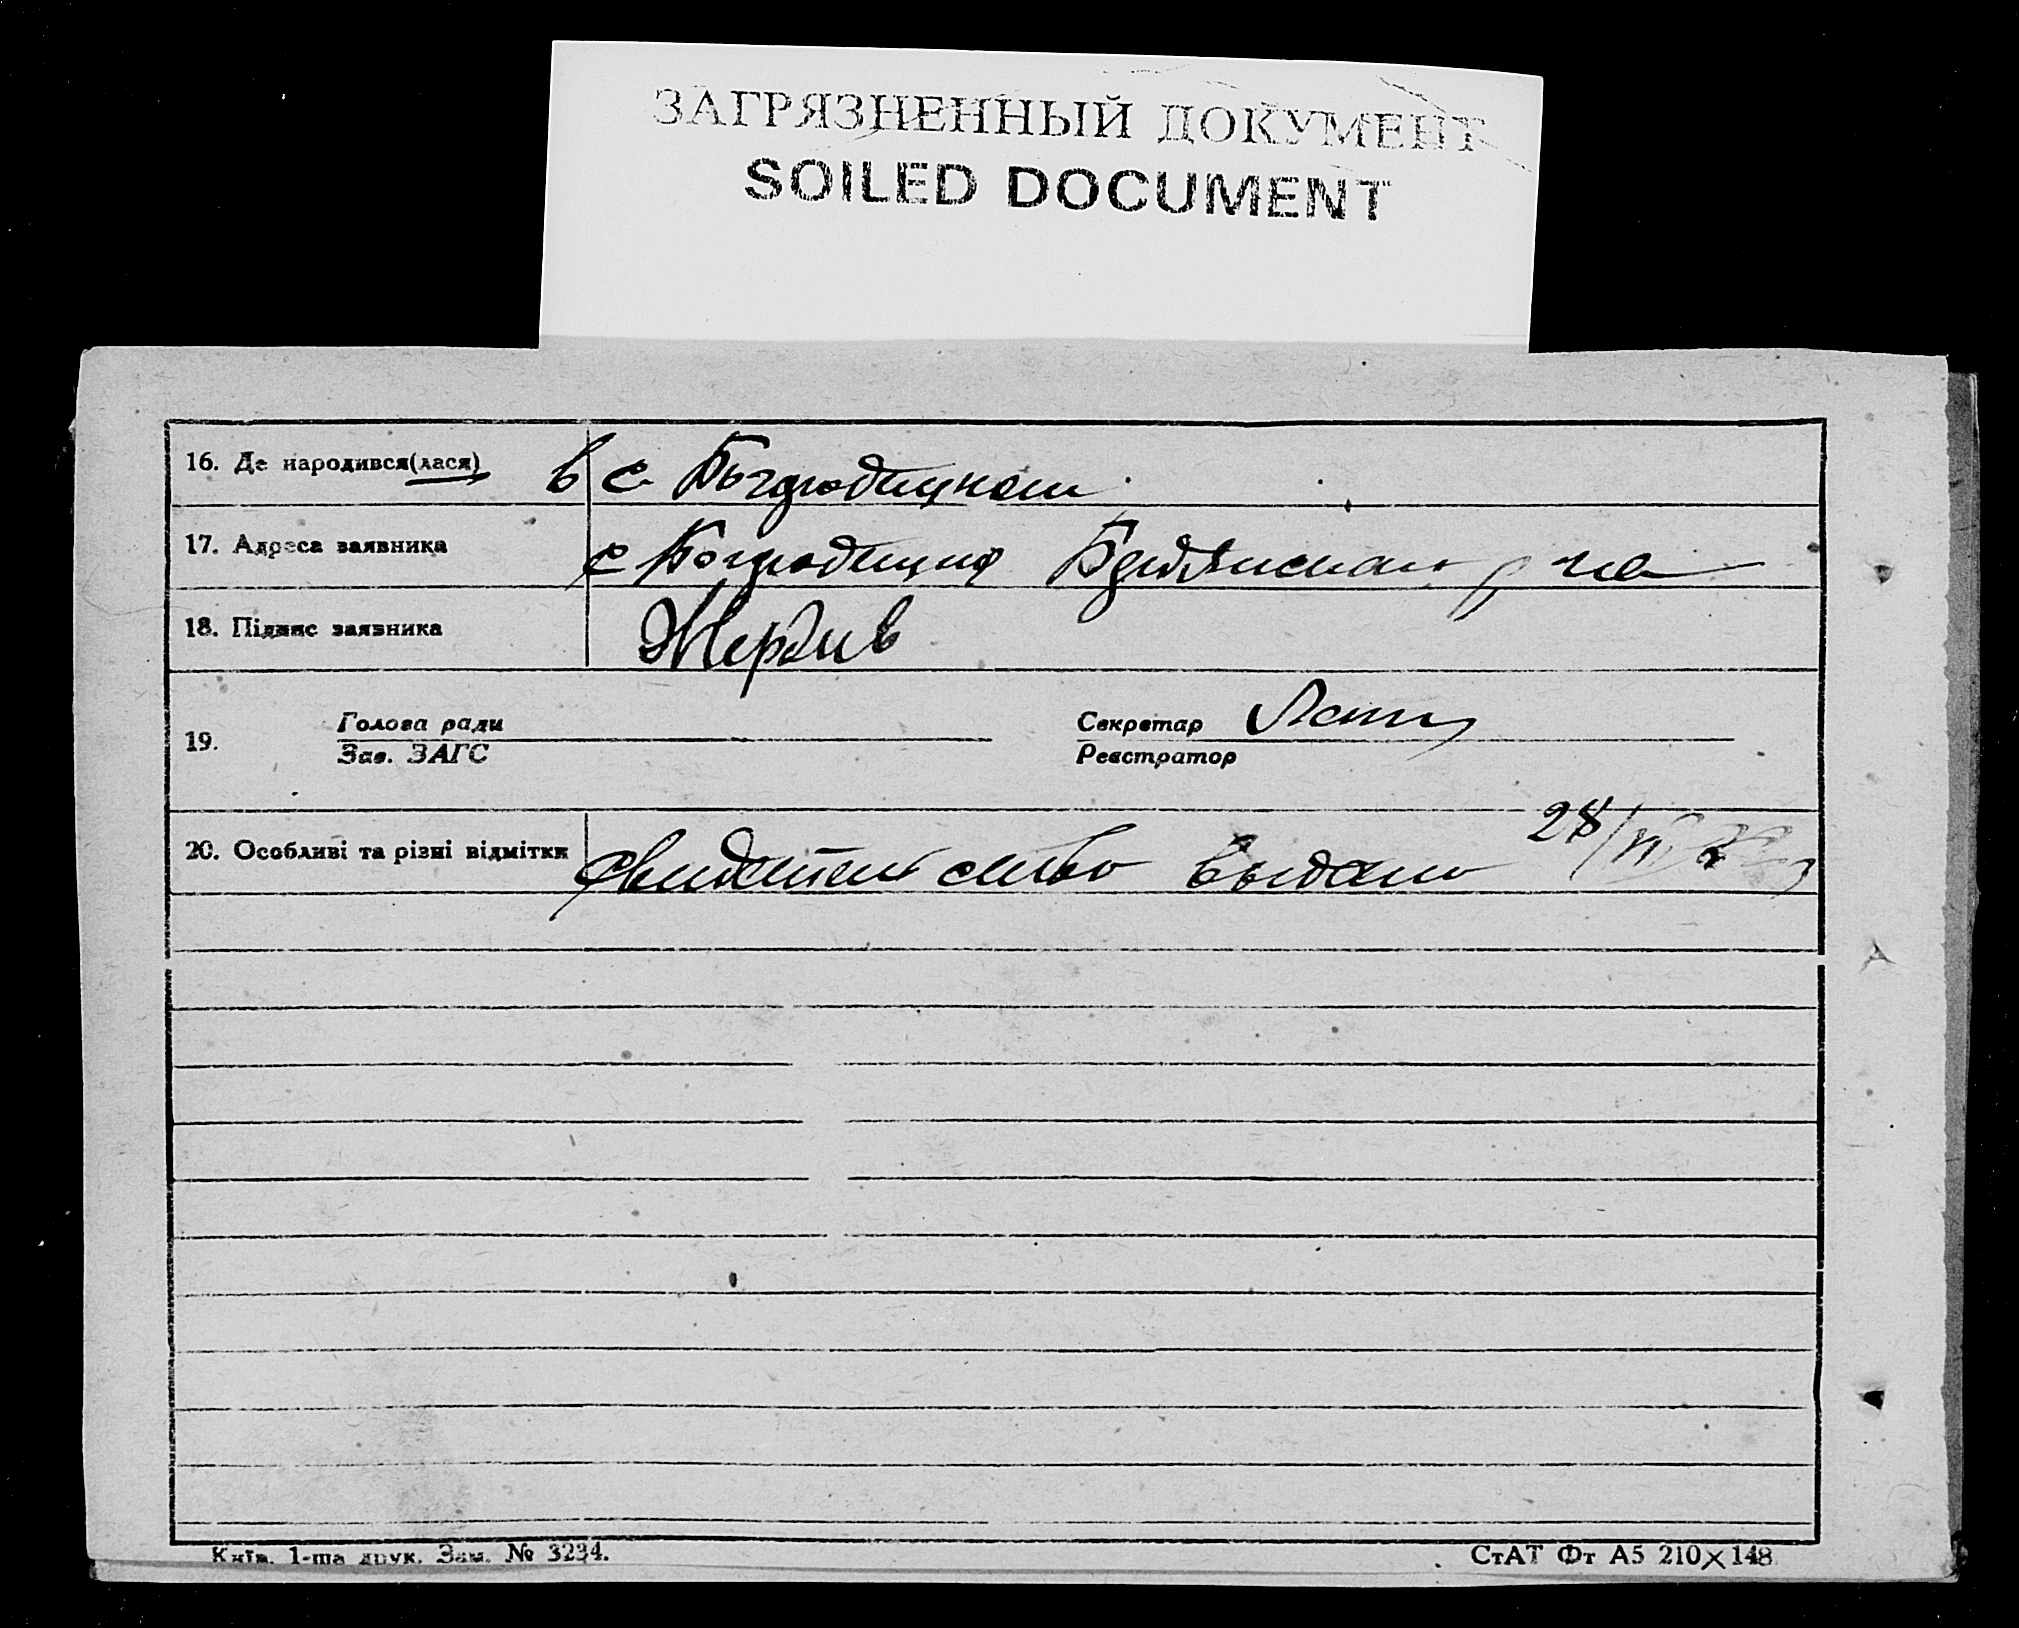 ЗАГРЯЗНЕННЫЙ ДОКУМЕНТ
SOILED DOCUMENT
16. Де народився(лася) в с.
17. Адреса заявника с
18. Підпис заявника
Голова ради Секретар
19.
Зав. ЗАГС Реєстратор
20. Особливі та різні відмітки свидетельство выдано 28/VI
Київ. 1-ша друк. Зам. № 3234. СтАТ Фт А5 210×148